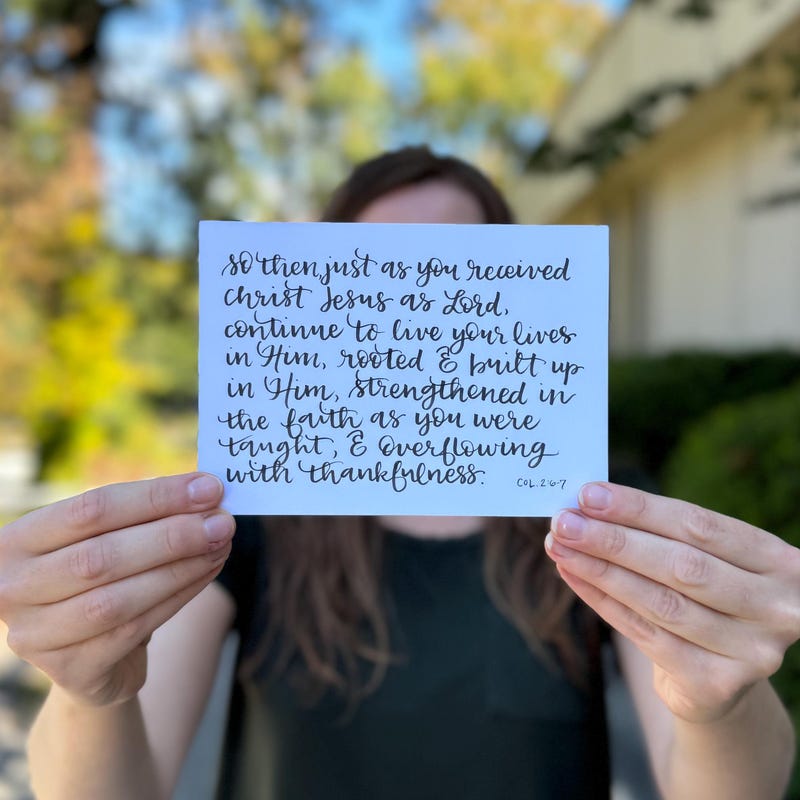 So then, just as you received
Christ Jesus as Lord,
continue to live your lives
in Him, rooted & built up
in Him, strengthened in
the faith as you were
taught, & overflowing
with thankfulness.
COL. 2:6-7